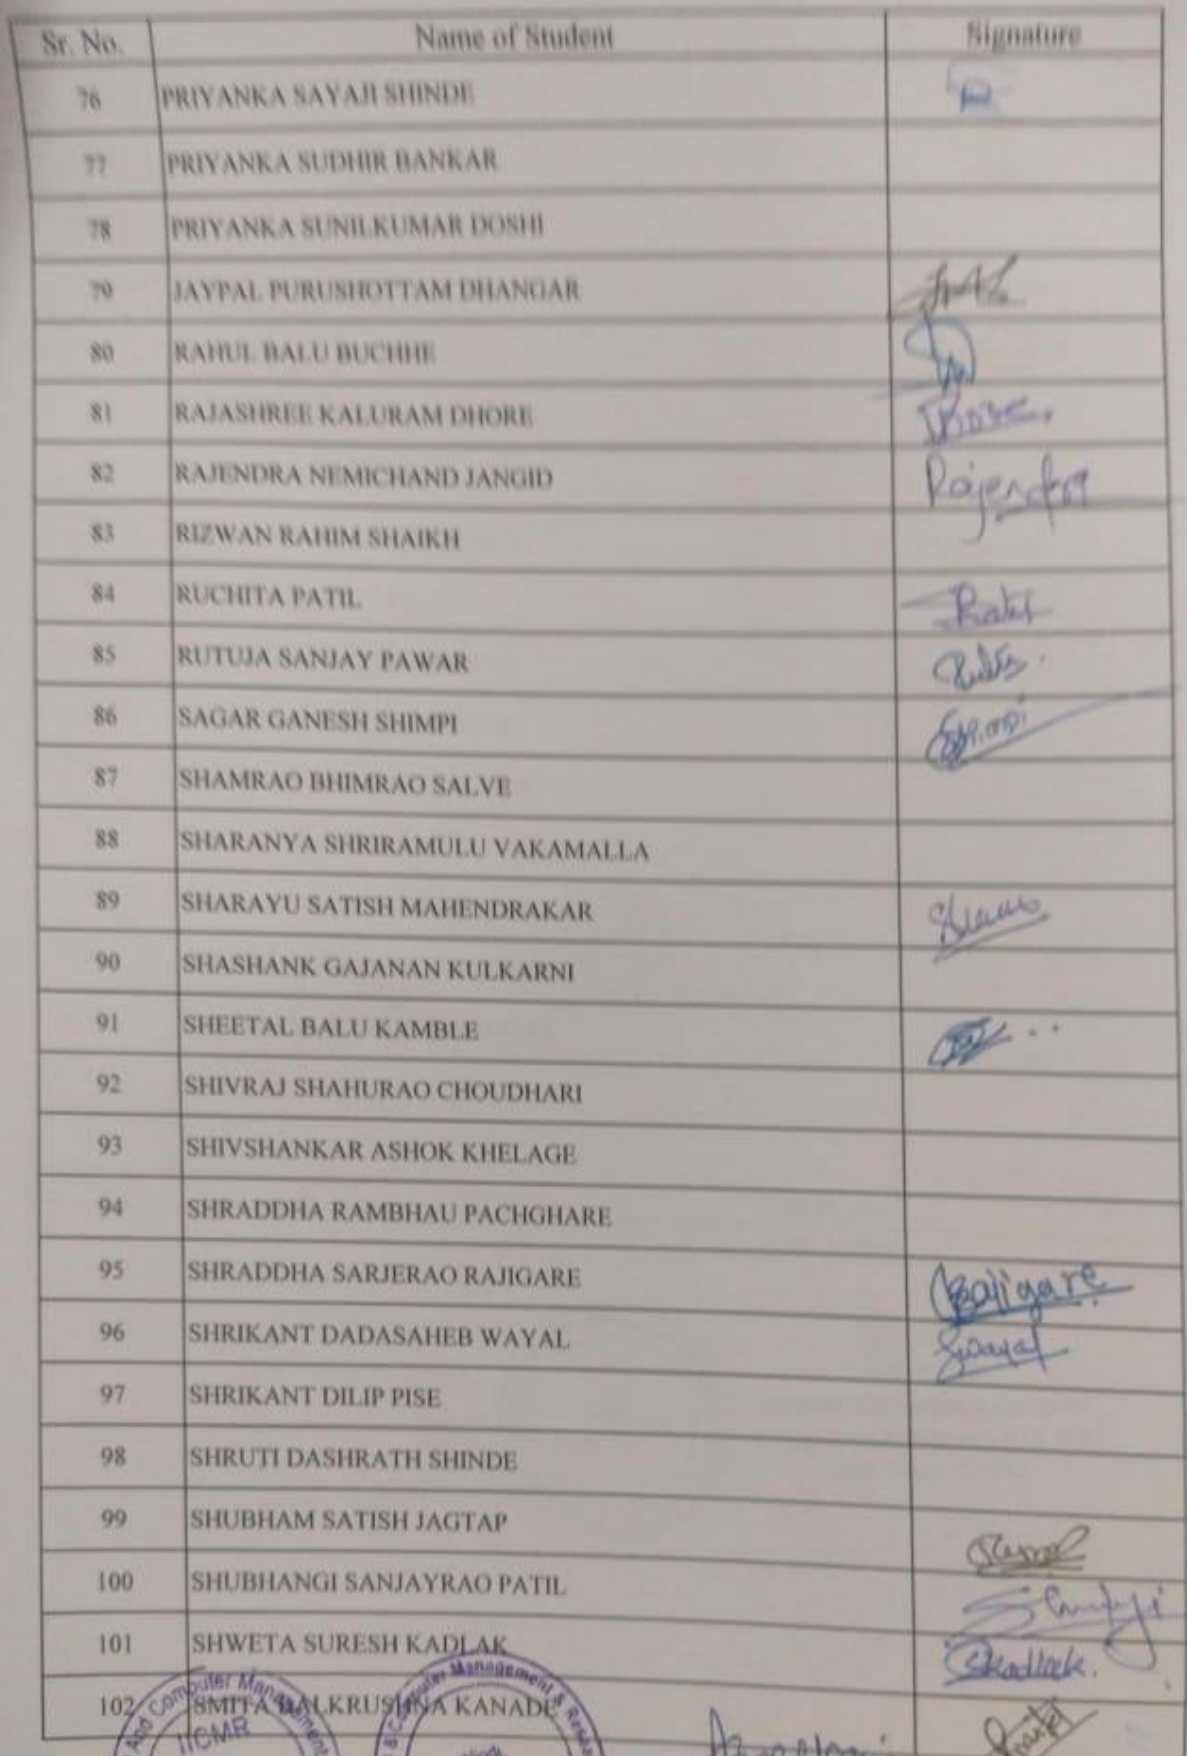 Sr. No. Name of Student Signature
76 PRIYANKA SAYAJI SHINDE
77 PRIYANKA SUDHIR BANKAR
78 PRIYANKA SUNILKUMAR DOSHI
79 JAYPAL PURUSHOTTAM DHANGAR
80 RAHUL BALU BUCHHE
81 RAJASHREE KALURAM DHORE
82 RAJENDRA NEMICHAND JANGID Rajendra
83 RIZWAN RAHIM SHAIKH
84 RUCHITA PATIL
85 RUTUJA SANJAY PAWAR
86 SAGAR GANESH SHIMPI
87 SHAMRAO BHIMRAO SALVE
88 SHARANYA SHRIRAMULU VAKAMALLA
89 SHARAYU SATISH MAHENDRAKAR
90 SHASHANK GAJANAN KULKARNI
91 SHEETAL BALU KAMBLE
92 SHIVRAJ SHAHURAO CHOUDHARI
93 SHIVSHANKAR ASHOK KHELAGE
94 SHRADDHA RAMBHAU PACHGHARE
95 SHRADDHA SARJERAO RAJIGARE
96 SHRIKANT DADASAHEB WAYAL
97 SHRIKANT DILIP PISE
98 SHRUTI DASHRATH SHINDE
99 SHUBHAM SATISH JAGTAP
100 SHUBHANGI SANJAYRAO PATIL
101 SHWETA SURESH KADLAK Skadlak.
102 SMITA BALKRUSHNA KANADE
And Computer Management
IICMR
Computer Management &